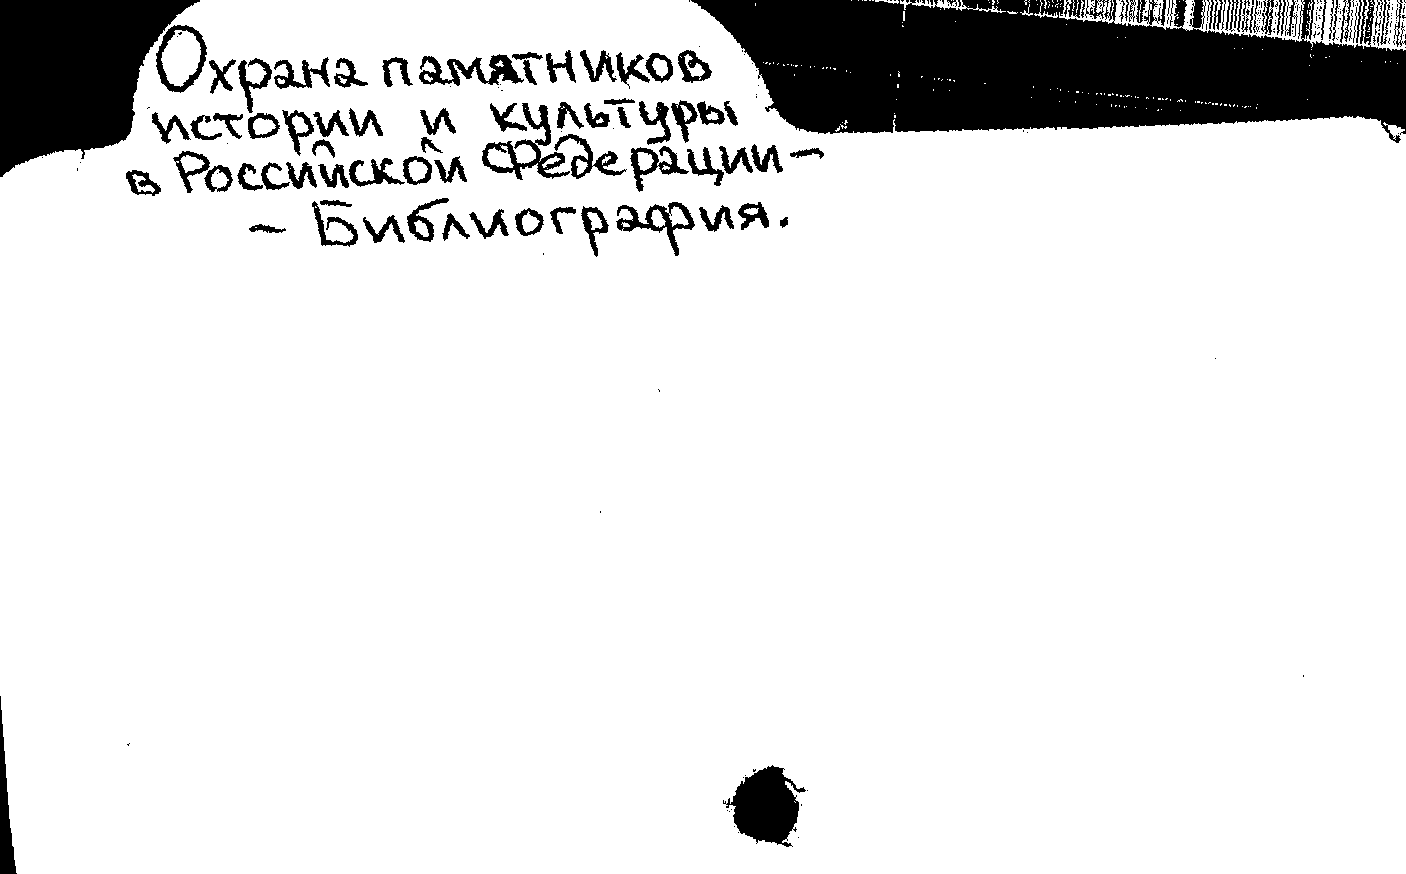 Охрана памятников
истории и культуры
в Российской Федерации –
– Библиография.